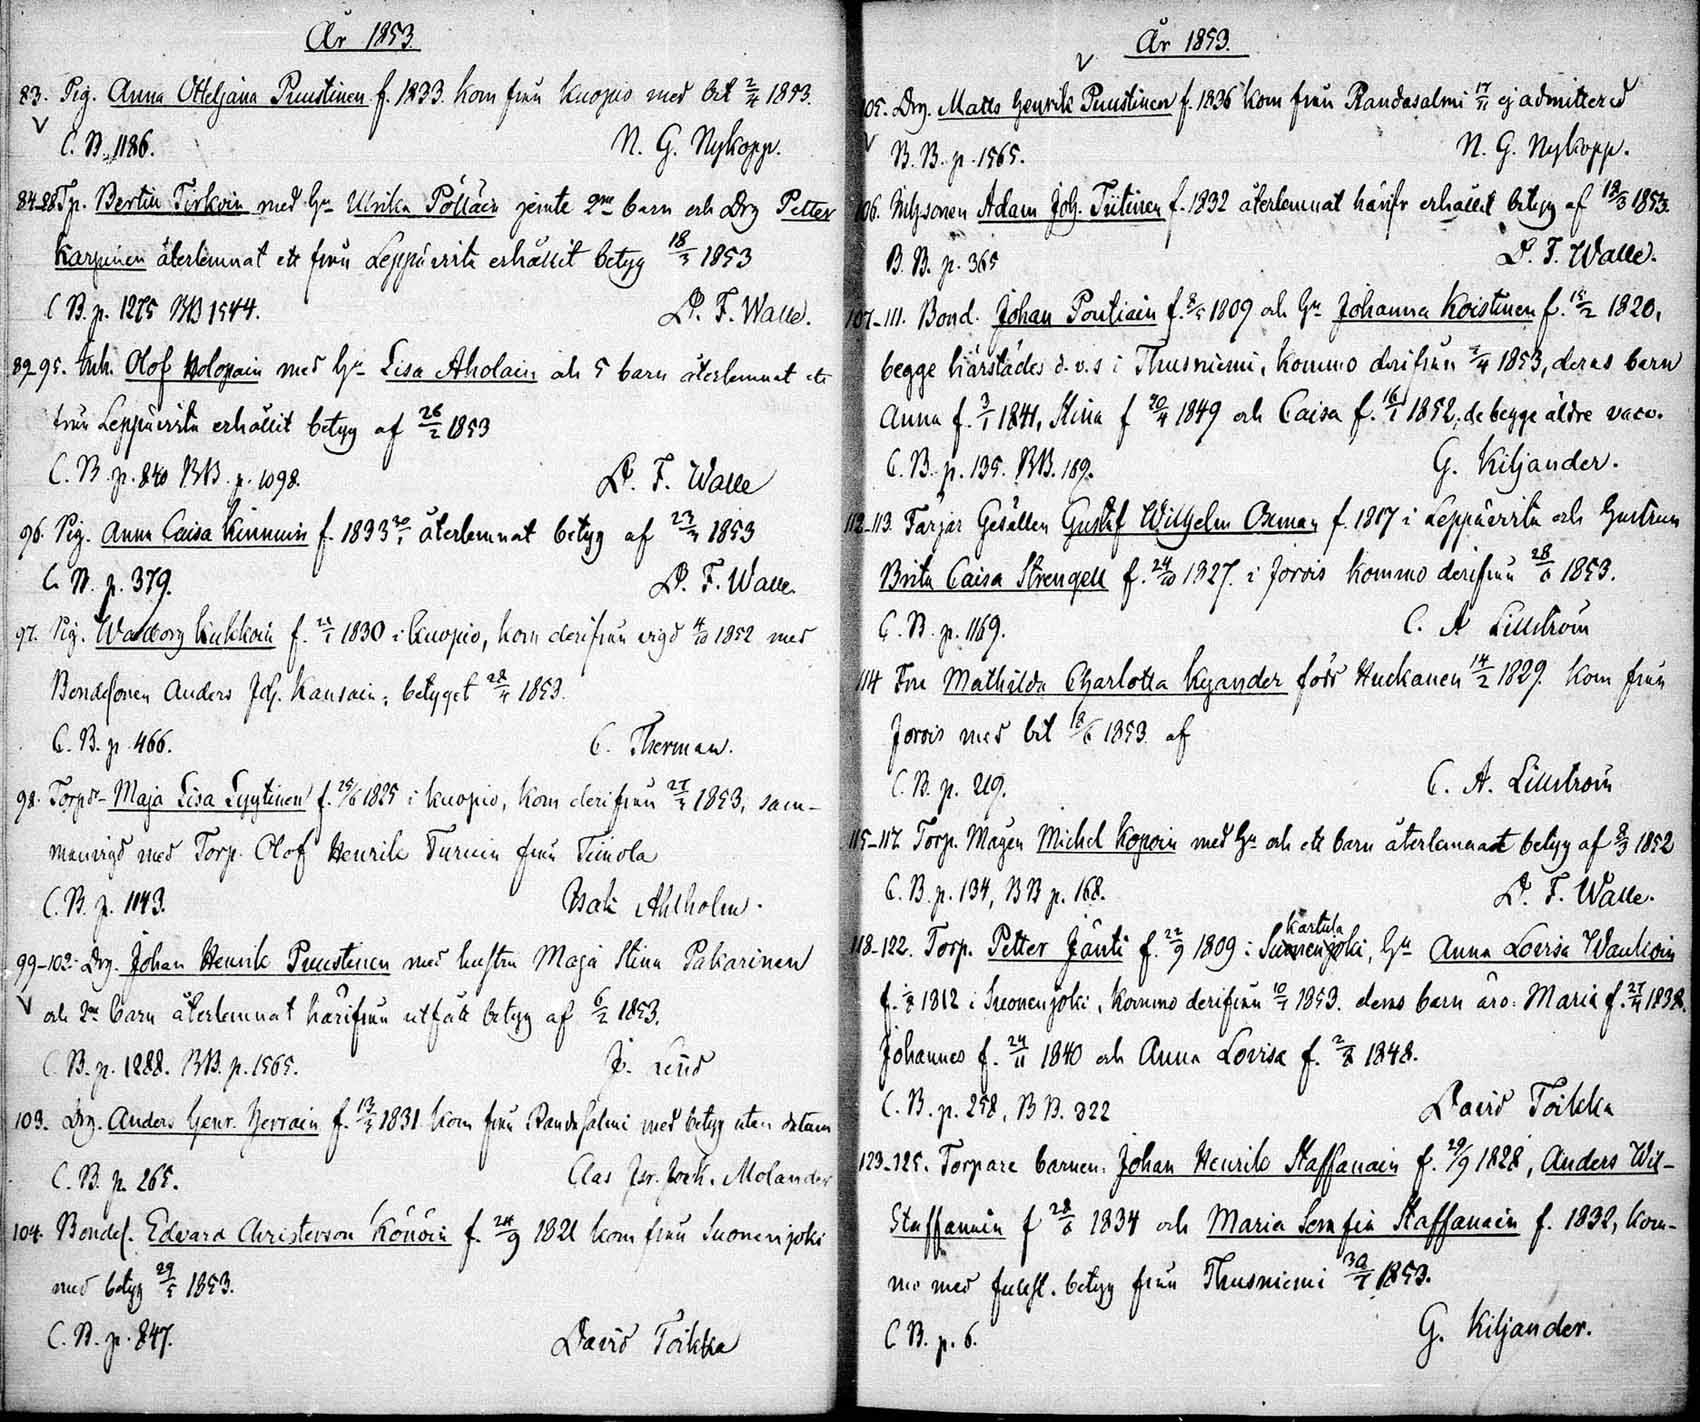 År 1853.
83. Pig. Anna Otteljana Puustinen f. 1833. kom från Kuopio med bet 2/4 1853.
C. B. 1186. N. G. Nykopp.
84-88 Tp. Bertin Tirkoin med Hu Ulrika Pöllain jemte 2ne barn och Drg Petter
Karpinen återlemnat ett från Leppävirta erhållit betyg 18/3 1853
C B. p. 1275 BB 1544. D. F. Walle.
89-95. Inh. Olof Holopain med Hu Lisa Aholain och 5 barn återlemnat ett
från Leppävirta erhållit betyg af 26/2 1853
C. B. p. 840 BB. p. 1098. D. F. Walle
96. Pig. Anna Caisa Kinnuin f. 1833 återlemnat betyg af 23/3 1853
C. B. p. 379. D. F. Walle.
97. Pig. Walborg Kukkoin f. 1830 i Kuopio, kom derifrån vigd 4/10 1852 med
Bondesonen Anders Joh. Kansain; betyget 28/4 1853.
C. B. p. 466. C. Therman.
98. Torpdr Maja Lisa Lyytinen f. 25/6 1825 i Kuopio, kom derifrån 27/3 1853, sam-
manvigd med Torp. Olof Henrik Turuin från Timola
C. B. p. 1143. Isak Ahlholm.
99-102. Drg. Johan Henrik Puustinen med hustru Maja Stina Pakarinen
och 2ne barn återlemnat härifrån utfått betyg af 6/2 1853.
C. B. p. 1288. BB. p. 1565. J.
103. Drg. Anders Henr. Herrain f. 13/3 1831 kom från Randasalmi med betyg utan datum
C. B. p. 265. Clas Molander
104. Bondes. Edvard Christersson Könöin f. 24/9 1821 kom från Suonenjoki
med betyg 29/5 1853.
C. B. p. 847. David Toikka
År 1853.
105. Drg. Matts Henrik Puustinen f. 1836 kom från Randasalmi ej admitterad
B. B. p. 1565. N. G. Nykopp.
106. Adam Joh. Tiitinen f. 1832 återlemnat härifr erhållit betyg af 12/3 1853.
B. B. p. 365 D. F. Walle.
107-111. Bond. Johan Poutiain f. 1809 och Hu Johanna Koistinen f. 15/2 1820,
begge härstädes d. v. s i Thusniemi, kommo derifrån 2/4 1853, deras barn
Anna f. 3/1 1841, Stina f 20/4 1849 och Caisa f. 16/1 1852, de begge äldre vacc.
C. B. p. 135. BB. 169. G. Kiljander.
112-113. Färjar Gesällen Gustaf Wilhelm Oxman f. 1817 i Leppävirta och Hustrun
Brita Caisa Strengell f. 24/10 1827. i Jorois kommo derifrån 28/6 1853.
C. B. p. 1169. C. A Lillström
114 Fru Mathilda Charlotta Kyander född Huckanen 14/2 1829. kom från
Jorois med bet 18/6 1853 af
C. B. p. 219. C. A. Lillström
115-117 Torp. Mågen Michel Kopoin med Hu och ett barn återlemnadt betyg af 8/3 1852
C. B. p. 134, BB p. 168. D. F. Walle.
Kartula
118-122. Torp. Petter Jänti f. 22/9 1809 i Suonenjoki, Hu Anna Lovisa Wauhoin
f. 1812 i Suonenjoki, kommo derifrån 1853. deras barn äro: Maria f. 27/4 1838.
Johannes f. 24/11 1840 och Anna Lovisa f. 2/8 1848.
C. B. p. 258, BB. 322 David Toikka
123-125. Torpare barnen: Johan Henrik Staffanain f. 29/9 1828, Anders Wil-
Staffanain f 28/6 1834 och Maria Serafia Staffanain f. 1832, kom-
mo med fullst. betyg från Thusniemi 1853.
C B. p. 6. G. Kiljander.